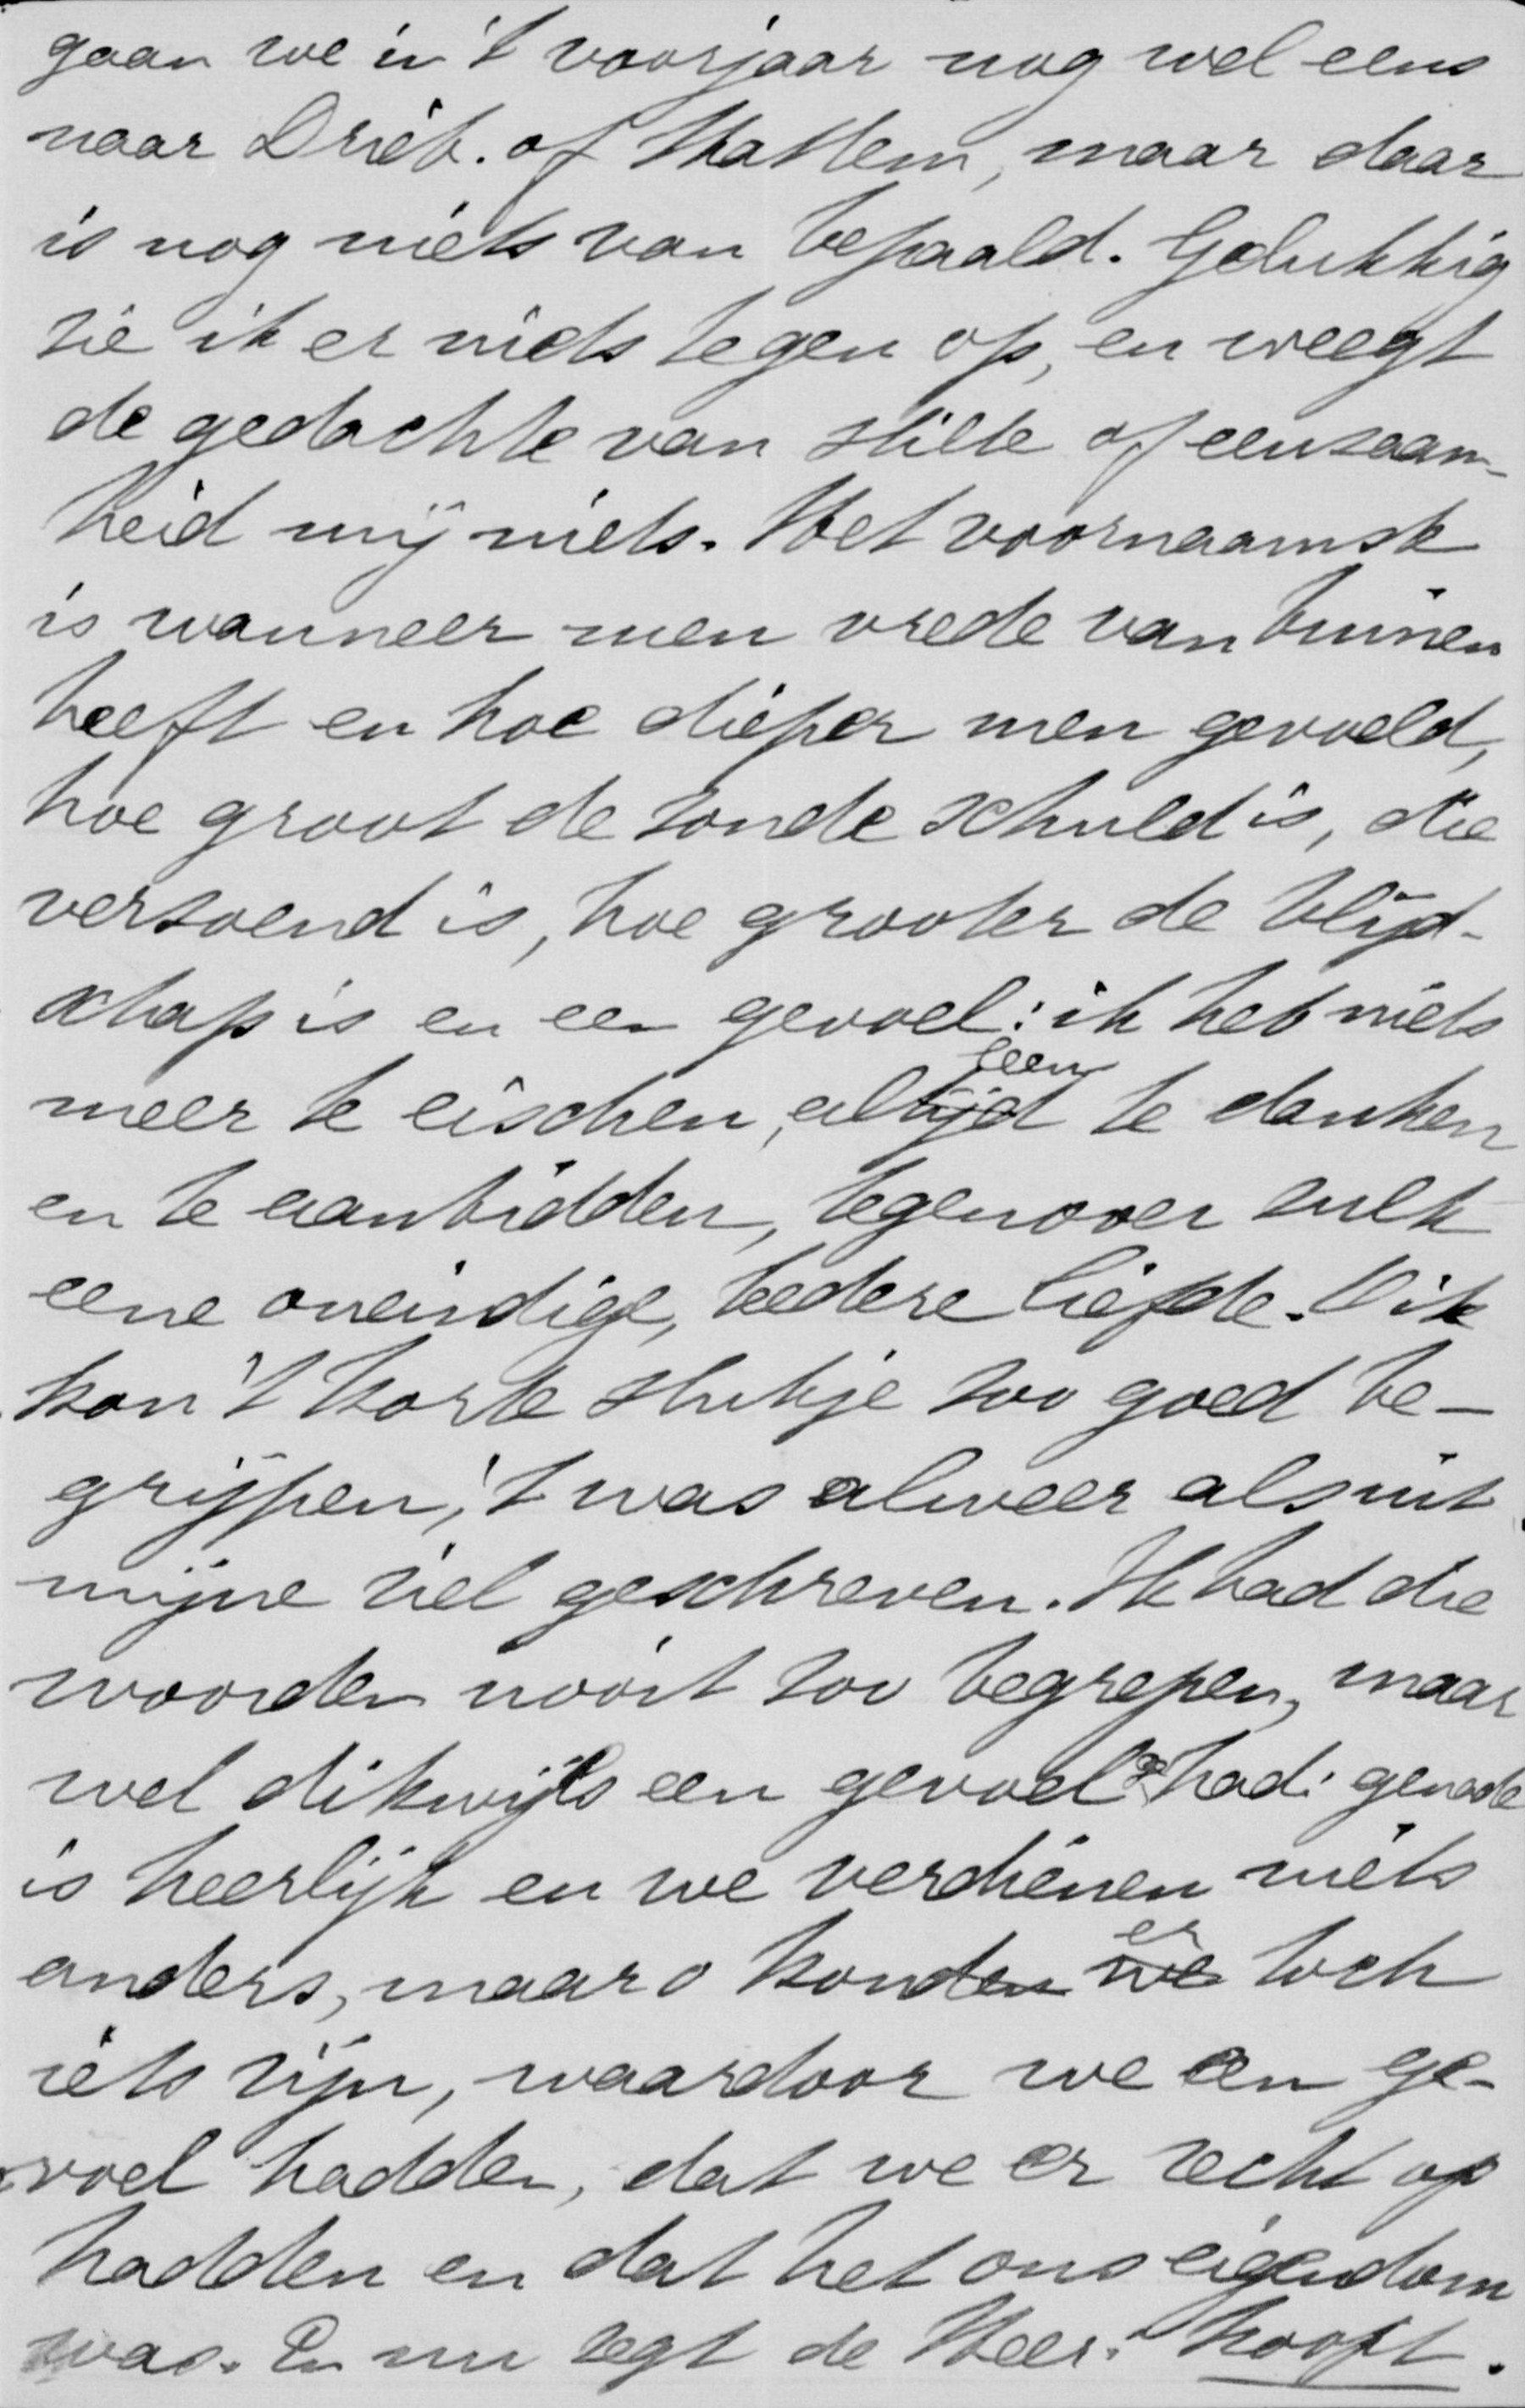 gaan we in 't voorjaar nog wel eens
naar Drieb. of Hattem, maar daar
is nog niets van bepaald. Gelukkig
zie ik er niets tegen op, en weegt
de gedachte van stilte of eenzaam-
heid mij niets. Het voornaamste
is wanneer men vrede van binnen
heeft en hoe dieper men gevoeld,
hoe groot de zonde schuld is, die
verzoend is, hoe grooter de blijd-
schap is en een gevoel: ik heb niets
meer te eischen, altijd te danken
en te aanbidden, tegenover zulk
eene oneindige, teedere liefde. O ik
kon 't korte stukje zoo goed be-
grijpen, 't was alweer als uit
mijne ziel geschreven. Ik had die
woorden nooit zoo begrepen, maar
wel dikwijls een gevoel had: genade
is heerlijk en we verdienen niets
anders, maar o konden we er toch
iets zijn, waardoor we een ge-
voel hadden, dat we er recht op
hadden en dat het ons eigendom
was. En nu zegt de Heer: koopt.